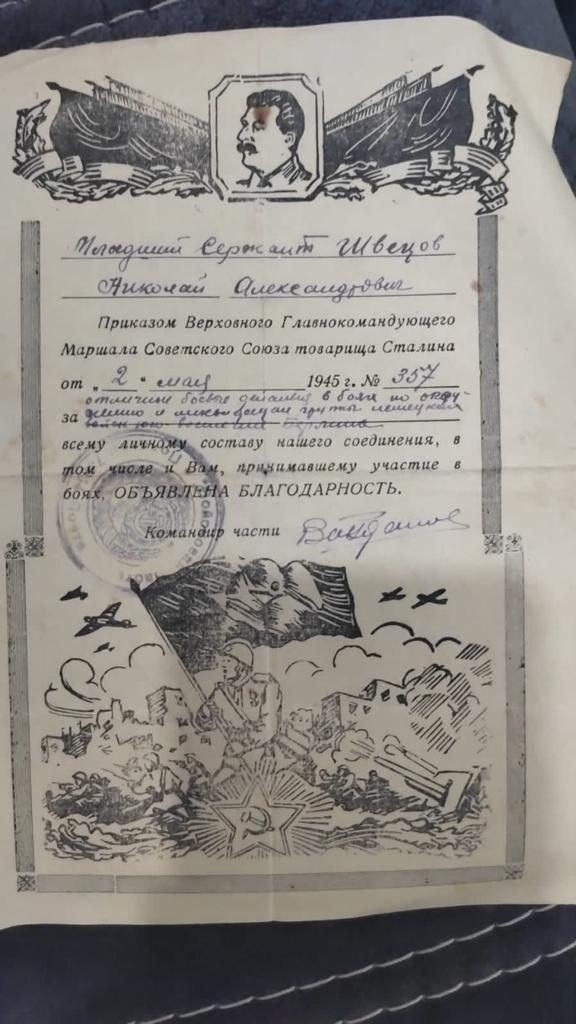 Младший Сержант Швецов
Николай Александрович
Приказом Верховного Главнокомандующего
Маршала Советского Союза товарища Сталина
от „2“ мая 1945 г. № 357
отличные боевые действия в боях по окру-
за жению и ликвидации группы немецких
войск юго-восточнее Берлина
всему личному составу нашего соединения, в
том числе и Вам, принимавшему участие в
боях, ОБЪЯВЛЕНА БЛАГОДАРНОСТЬ.
Командир части